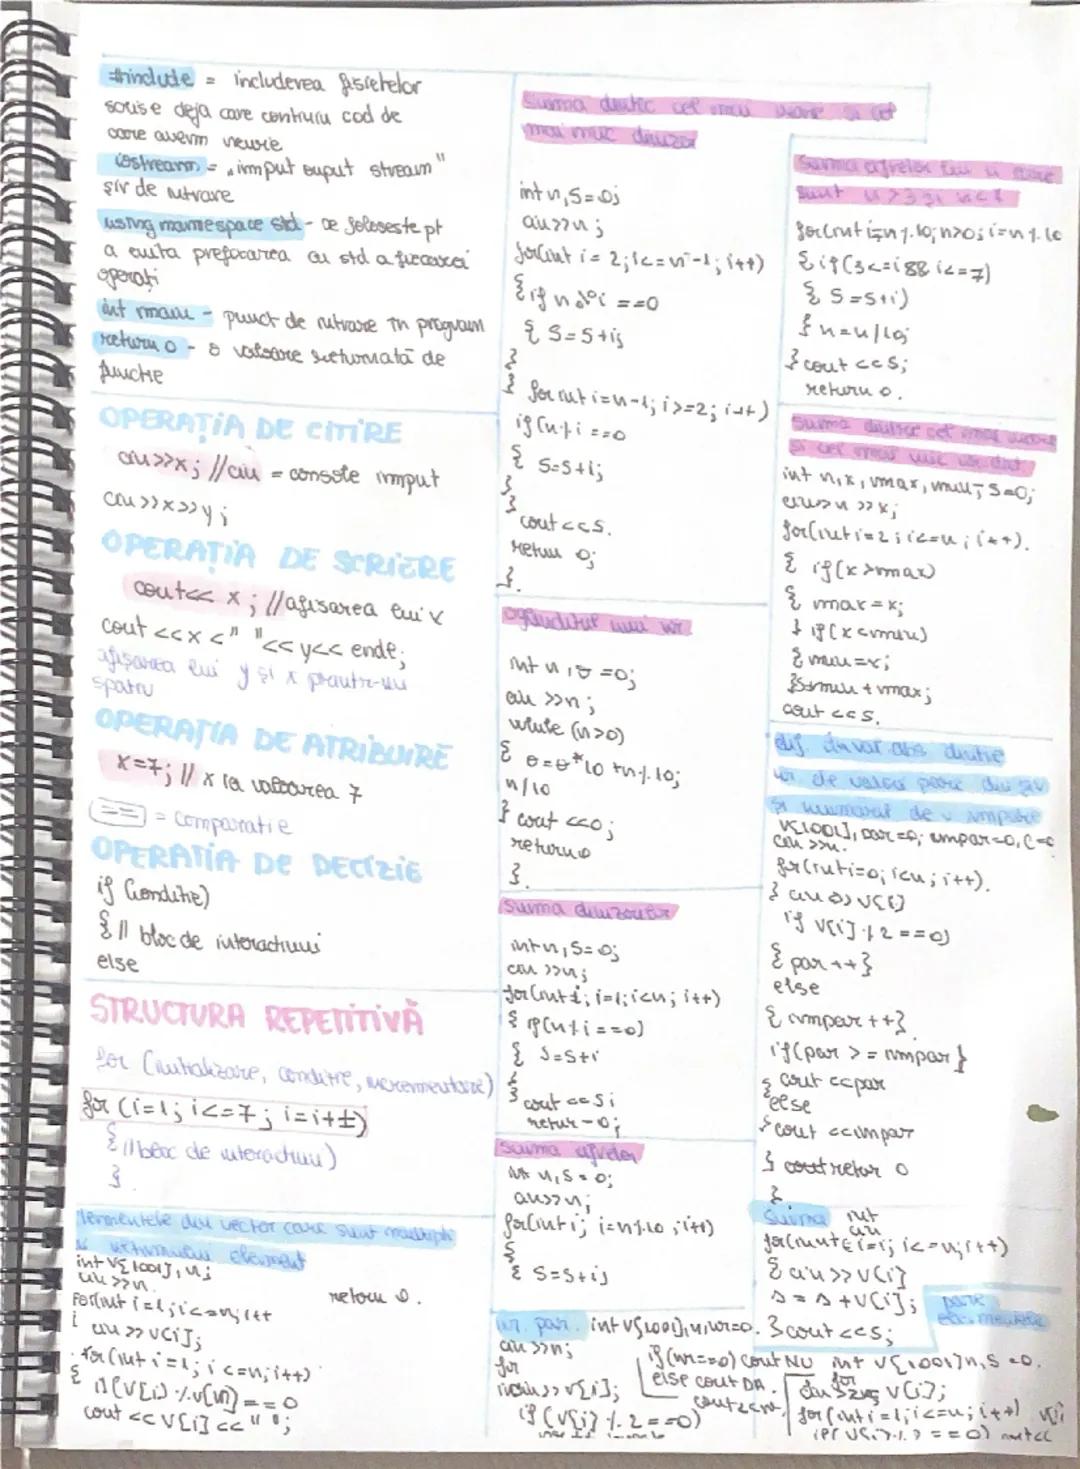 #include = includerea fisierelor
scrise deja care contin cod de
care avem nevoie
iostream = "imput ouput stream"
șir de intrare
using mamespace std - se foloseste pt
a evita prefixarea cu std a fiecarei
operați
int main - punct de intrare în program
return 0 - o valoare returnată de
functie
OPERAȚIA DE CITIRE
cin>>x; //cin = console imput
cin>>x>>y;
OPERAȚIA DE SCRIERE
cout<< x; //afisarea lui x
cout <<x <" "<< y<< endl;
afișarea lui y și x printr-un
spatiu
OPERAȚIA DE ATRIBUIRE
x=7; // x ia valoarea 7
== = comparatie
OPERATIA DE DECIZIE
if (conditie)
{ // bloc de interactiuni
else
STRUCTURA REPETITIVĂ
for (initializare, conditie, incrementare)
for (i=1; i<=7; i=i+1)
{ //bloc de interactiuni)
}.
elementele din vector care sunt multipli
ultimului element
int v[1001], n;
cin >>n.
for(int i=1; i<=n; i++
cin >> v[i];
for (int i=1; i<=n; i++)
{
if(v[i] % v[n]) == 0
cout << v[i] << " ";
return 0.
suma dintre cel mai mare si cel
mai mic divizor
int n, s=0;
cin>>n;
for(int i = 2; i<=n-1; i++)
{ if n%i ==0
{ s=s+i;
}
} for int i=n-1; i>=2; i++)
if (n%i ==0
{ s=s+i;
}
}
cout<<s.
return 0;
}.
oglinditul unui nr.
int n, o =0;
cin >>n;
while (n>0)
{ o=o*10 +n%10;
n/10
} cout <<o;
return 0
}.
suma divizorilor
int n, s=0;
cin >>n;
for(int i; i=1; i<n; i++)
{ if(n%i==0)
{ s=s+i
}
} cout <<s;
retur-0;
suma cifrelor
int n, s=0;
cin>>n;
for(int i; i=n%10; i++)
{
{ s=s+i;
nr. par. int v[1001], n, nr=0.
cin >>n;
for
cin >> v[i];
if (v[i] % 2 ==0)
if (nr==0) cout NU
else cout DA.
suma cifrelor lui n care
sunt n>3 și n<7
for(int i=n%10; n>0; i=n%10
{ if(3<=i && i<=7)
{ s=s+i)
} n=n/10;
} cout <<s;
return 0.
suma dintre cel mai mare
si cel mai mic nr. dat
int n, x, vmax, vmin, s=0;
cin>>n >>x;
for(int i=2; i<=n; i++).
{ if(x>vmax)
{ max=x;
} if(x<min)
{ min=x;
} s=min+vmax;
cout <<s.
dif. din val abs dintre
nr. de valori pare din șir
și numarul de v impare
v[1001], par=0; impar=0, c=0
cin >>n.
for(int i=0; i<n; i++).
} cin >> v[i]
if v[i] % 2 ==0)
{ par++}
else
{ impar++}
if(par >= impar}
{ cout <<par
else
} cout <<impar
} cout retur 0
}.
suma int
cin
for(int i=1; i<=n; i++)
{ cin >> v[i]
s = s + v[i];
} cout <<s;
pare
elementele
int v[1001] n, s=0.
for
v[i];
for(int i=1; i<=n; i++)